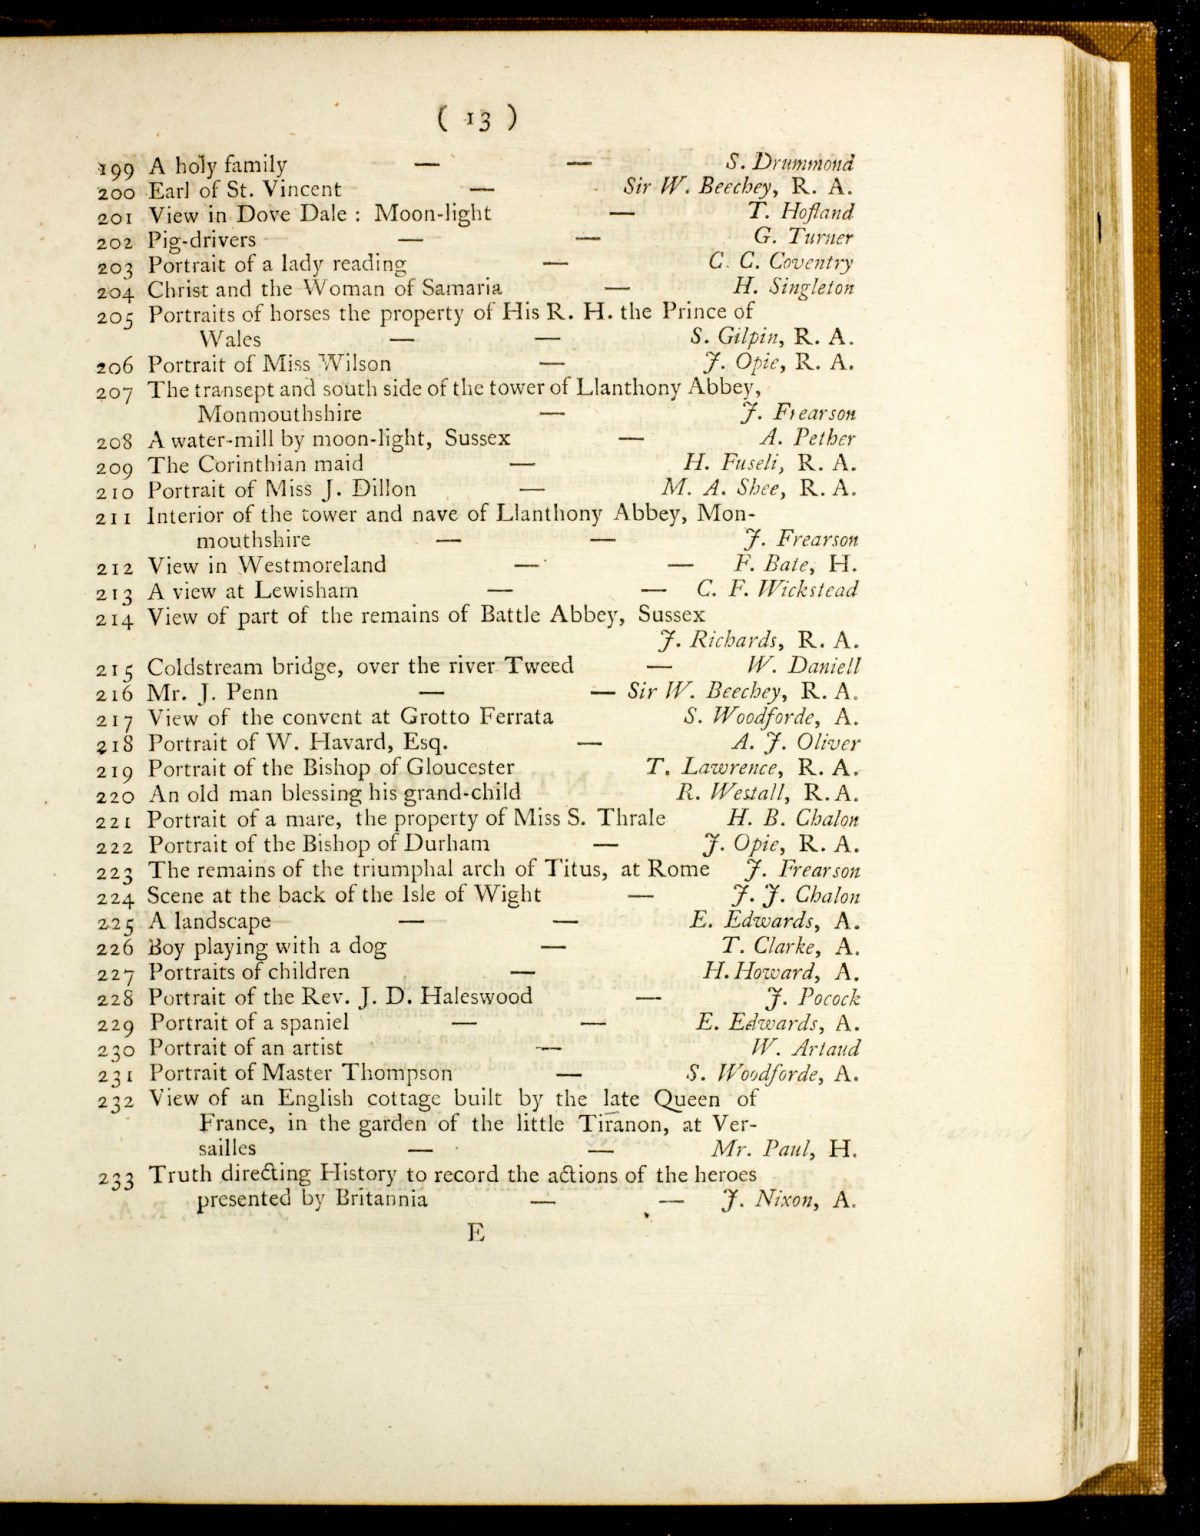 ( 13 )
199 A holy family — — S. Drummond
200 Earl of St. Vincent — Sir W. Beechey, R. A.
201 View in Dove Dale : Moon-light — T. Hofland
202 Pig-drivers — — G. Turner
203 Portrait of a lady reading — C. C. Coventry
204 Christ and the Woman of Samaria — H. Singleton
205 Portraits of horses the property of His R. H. the Prince of
Wales — — S. Gilpin, R. A.
206 Portrait of Miss Wilson — J. Opie, R. A.
207 The transept and south side of the tower of Llanthony Abbey,
Monmouthshire — J. Frearson
208 A water-mill by moon-light, Sussex — A. Pether
209 The Corinthian maid — H. Fuseli, R. A.
210 Portrait of Miss J. Dillon — M. A. Shee, R. A.
211 Interior of the tower and nave of Llanthony Abbey, Mon-
mouthshire — — J. Frearson
212 View in Westmoreland — — F. Bate, H.
213 A view at Lewisham — — C. F. Wickstead
214 View of part of the remains of Battle Abbey, Sussex
J. Richards, R. A.
215 Coldstream bridge, over the river Tweed — W. Daniell
216 Mr. J. Penn — — Sir W. Beechey, R. A.
217 View of the convent at Grotto Ferrata S. Woodforde, A.
218 Portrait of W. Havard, Esq. — A. J. Oliver
219 Portrait of the Bishop of Gloucester T. Lawrence, R. A.
220 An old man blessing his grand-child R. Westall, R. A.
221 Portrait of a mare, the property of Miss S. Thrale H. B. Chalon
222 Portrait of the Bishop of Durham — J. Opie, R. A.
223 The remains of the triumphal arch of Titus, at Rome J. Frearson
224 Scene at the back of the Isle of Wight — J. J. Chalon
225 A landscape — — E. Edwards, A.
226 Boy playing with a dog — T. Clarke, A.
227 Portraits of children — H. Howard, A.
228 Portrait of the Rev. J. D. Haleswood — J. Pocock
229 Portrait of a spaniel — — E. Edwards, A.
230 Portrait of an artist — W. Artaud
231 Portrait of Master Thompson — S. Woodforde, A.
232 View of an English cottage built by the late Queen of
France, in the garden of the little Tiranon, at Ver-
sailles — — Mr. Paul, H.
233 Truth directing History to record the actions of the heroes
presented by Britannia — — J. Nixon, A.
E